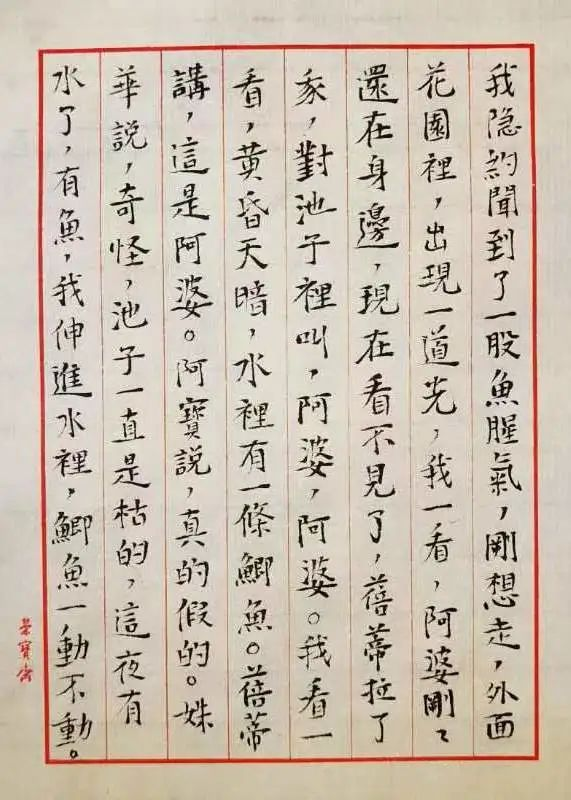 我隐約聞到了一股魚腥氣，剛想走，外面
花園裡，出現一道光，我一看，阿婆剛〻
還在身邊，現在看不見了，蓓蒂拉了
我，對池子裡叫，阿婆，阿婆。我看一
看，黄昏天暗，水裡有一條鯽魚。蓓蒂
講，這是阿婆。阿寶說，真的假的。姝
華說，奇怪，池子一直是枯的，這夜有
水了，有魚，我伸進水裡，鯽魚一動不動。
榮寶齋